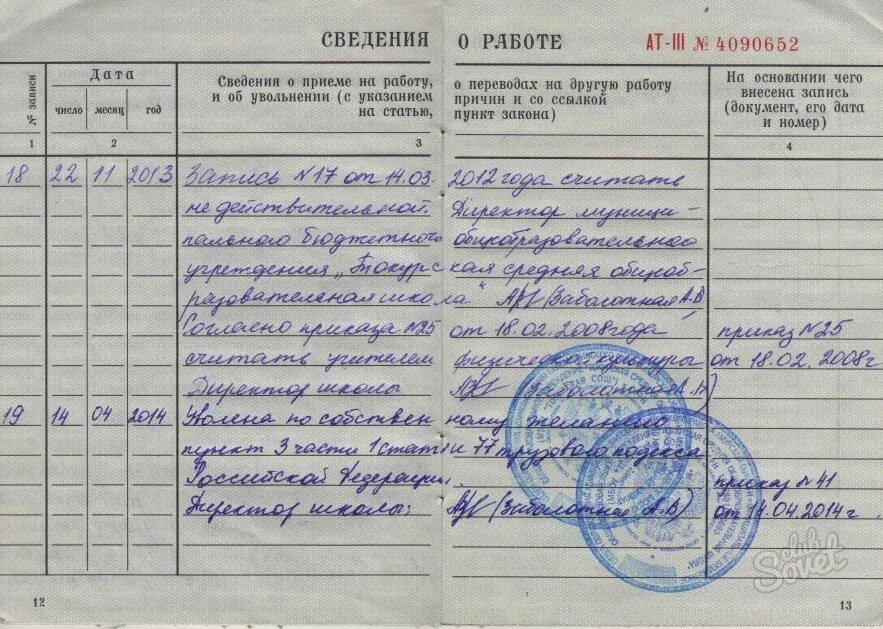 СВЕДЕНИЯ О РАБОТЕ АТ-III № 4090652
№ записи
Дата
число месяц год
Сведения о приеме на работу, о переводах на другую работу
и об увольнении (с указанием причин и со ссылкой
на статью, пункт закона)
На основании чего
внесена запись
(документ, его дата
и номер)
1 2 3 4
18 22 11 2013 Запись №17 от 14.03. 2012 года считать
не действительной. Директор муници-
пального бюджетного общеобразовательного
учреждения „Токурская средняя общеоб-
разовательная школа“ (Заболотная А.В
Согласно приказа №25 от 18.02.2008 года приказ №25
считать учителем физической культуры от 18.02.2008г
Директор школы (Заболотная А.В)
19 14 04 2014 Уволена по собственному желанию
пункт 3 части 1 статьи 77 трудового кодекса
Российской Федерации. приказ №41
Директор школы: (Заболотная А.В) от 14.04.2014г.
12 13
club
Sovet